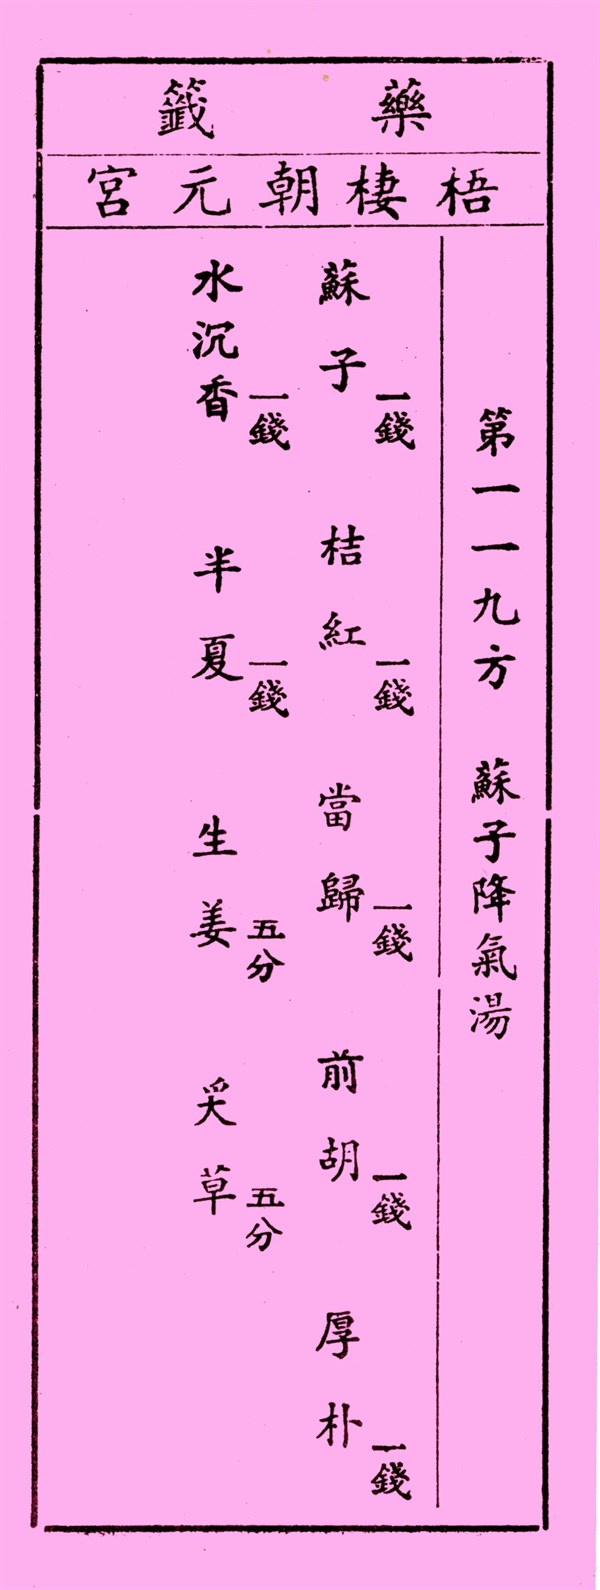 藥籤
梧棲朝元宮
第一一九方 蘇子降氣湯
蘇子 一錢 桔紅 一錢 當歸 一錢 前胡 一錢 厚朴 一錢
水沉香 一錢 半夏 一錢 生姜 五分 炙草 五分